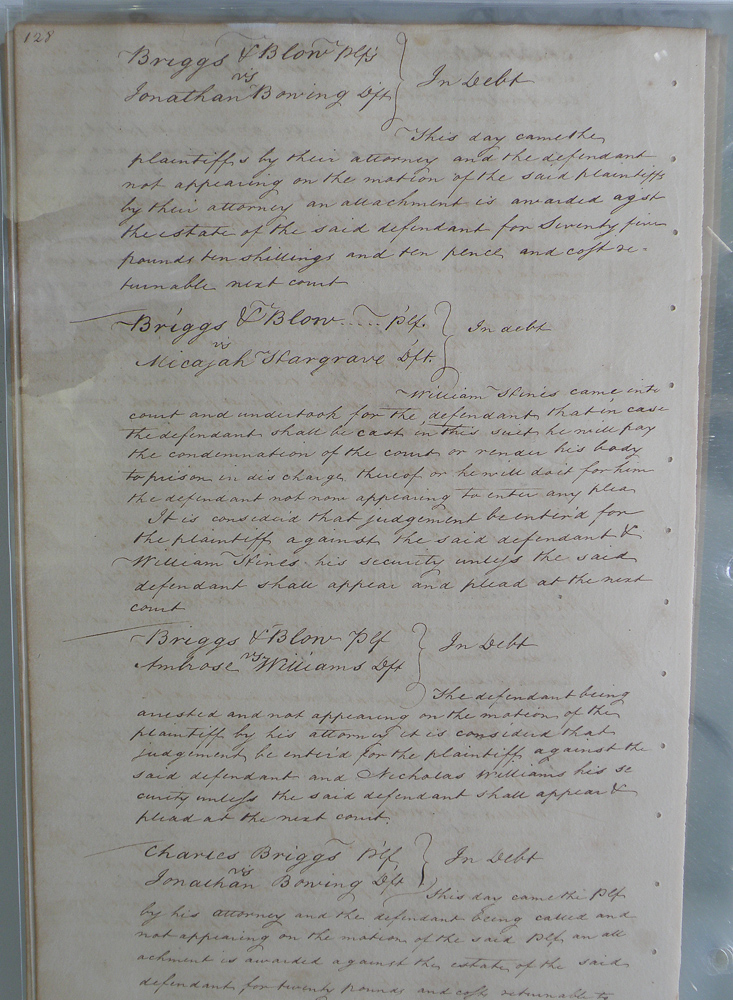 128
Briggs & Blow Plfs
vs
Jonathan Bowing Dft
In Debt
This day came the
plaintiffs by their attorney and the defendant
not appearing on the motion of the said plaintiffs
by their attorney an attachment is awarded agst
the estate of the said defendant for Seventy five
pounds ten shillings and ten pence and cost re-
turnable next court
Briggs & Blow ..... Plf.
vs
Micajah Hargrave Dft.
In debt
William Hines came into
court and undertook for the defendant that in case
the defendant shall be cast in this suit he will pay
the condemnation of the court or render his body
to prison in discharge thereof or he will do it for him
the defendant not now appearing to enter any plea
It is consider'd that judgement be enter'd for
the plaintiff against the said defendant &
William Hines his security unless the said
defendant shall appear and plead at the next
court
Briggs & Blow Plf
vs
Ambrose Williams Dft
In Debt
The defendant being
arrested and not appearing on the motion of the
plaintiff by his attorney it is consider'd that
judgement be enter'd for the plaintiff against the
said defendant and Nicholas Williams his se
curity unless the said defendant shall appear &
plead at the next court.
Charles Briggs Plf
vs
Jonathan Bowing Dft
In Debt
This day came the Plf
by his attorney and the defendant being called and
not appearing on the motion of the said Plf an att
achment is awarded against the estate of the said
defendant for twenty pounds and costs returnable to